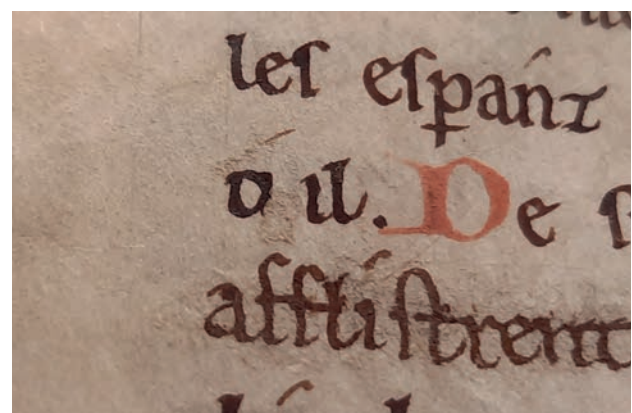 leſ eſpánt
o il. De ſ
affliſtrent